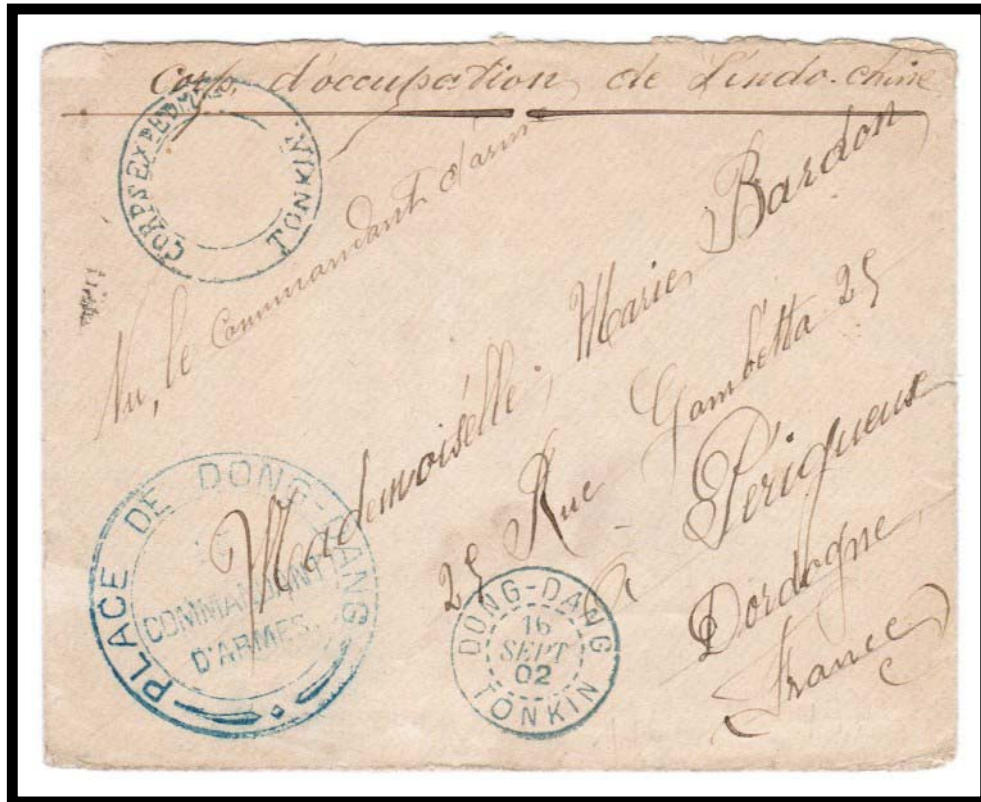 Corps d'occupation de L'indo-chine
CORPS EXPEDRE
TONKIN
Vu, le Commandant d'armes
Mademoisélle Marie Bardon
25 Rue Gambétta 25
à Périgueux
Dordogne
France
PLACE DE DONG-DANG
COMMANDANT
D'ARMES.
DONG-DANG
16
SEPT
02
TONKIN